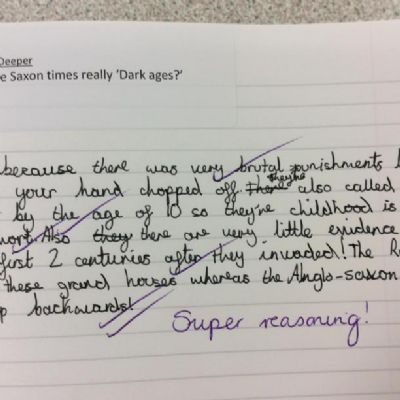 Deeper
e Saxon times really 'Dark ages?'
because there was very brutal punishments
your hand chopped off. There they're also called
by the age of 10 so they're childhood is
work. Also they there are very little evidence
first 2 centuries after they invaded! The R
these grand houses whereas the Anglo-saxon
p backwards!
Super reasoning!